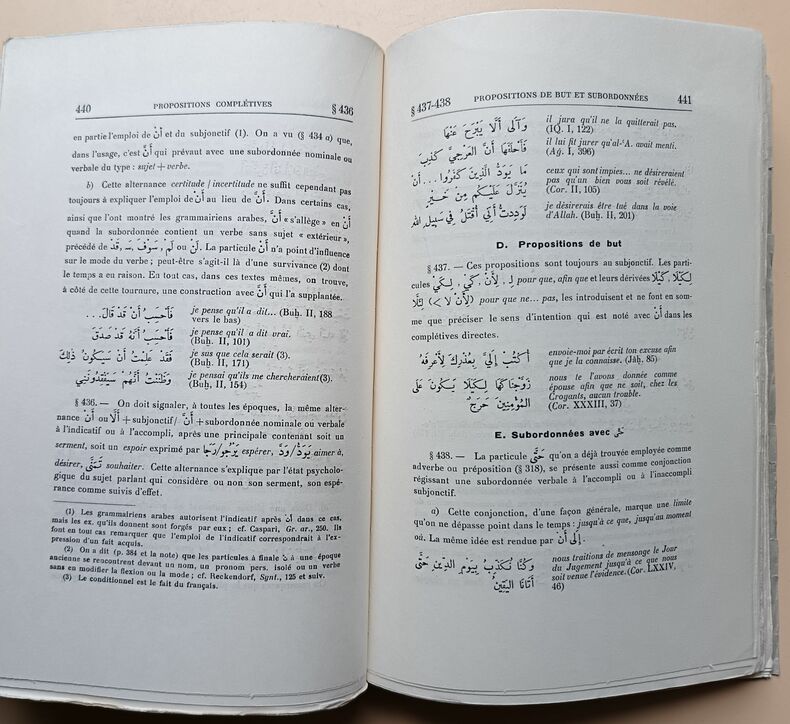 440 PROPOSITIONS COMPLÉTIVES § 436
en partie l'emploi de أَنْ et du subjonctif (1). On a vu (§ 434 a) que,
dans l'usage, c'est أَنَّ qui prévaut avec une subordonnée nominale ou
verbale du type : sujet + verbe.
b) Cette alternance certitude / incertitude ne suffit cependant pas
toujours à expliquer l'emploi de أَنْ au lieu de أَنَّ. Dans certains cas,
ainsi que l'ont montré les grammairiens arabes, أَنَّ « s'allège » en أَنْ
quand la subordonnée contient un verbe sans sujet « extérieur »,
précédé de قَدْ, سَـ, سَوْفَ, لَمْ ou لَنْ. La particule أَنْ n'a point d'influence
sur le mode du verbe ; peut-être s'agit-il là d'une survivance (2) dont
le temps a eu raison. En tout cas, dans ces textes mêmes, on trouve,
à côté de cette tournure, une construction avec أَنَّ qui l'a supplantée..
فَأَحْسَبُ أَنْ قَدْ قَالَ... je pense qu'il a dit... (Buḫ. II, 188
vers le bas)
فَأَحْسَبُ أَنَّهُ قَدْ صَدَقَ je pense qu'il a dit vrai.
(Buḫ. II, 101)
فَقَدْ عَلِمْتُ أَنْ سَيَكُونُ ذٰلِكَ je sus que cela serait (3).
(Buḫ. II, 171)
وَظَنَنْتُ أَنَّهُمْ سَيَفْقِدُونَنِي je pensai qu'ils me chercheraient(3).
(Buḫ. II, 154)
§ 436. — On doit signaler, à toutes les époques, la même alter-
nance أَنْ ou أَلَّا + subjonctif/ أَنَّ / أَنْ + subordonnée nominale ou verbale
à l'indicatif ou à l'accompli, après une principale contenant soit un
serment, soit un espoir exprimé par رَجَا/يَرْجُو espérer, وَدَّ/يَوَدُّ aimer à,
désirer, تَمَنَّى souhaiter. Cette alternance s'explique par l'état psycholo-
gique du sujet parlant qui considère ou non son serment, son espé-
rance comme suivis d'effet.
(1) Les grammairiens arabes autorisent l'indicatif après أن dans ce cas,
mais les ex. qu'ils donnent sont forgés par eux ; cf. Caspari, Gr. ar., 250. Ils
font en tout cas remarquer que l'emploi de l'indicatif correspondrait à l'ex-
pression d'un fait acquis.
(2) On a dit (p. 384 et la note) que les particules à finale نْ à une époque
ancienne se rencontrent devant un nom, un pronom pers. isolé ou un verbe
sans en modifier la flexion ou la mode ; cf. Reckendorf, Synt., 125 et suiv.
(3) Le conditionnel est le fait du français.
§ 437-438 PROPOSITIONS DE BUT ET SUBORDONNÉES 441
وَآلَى أَلَّا يَبْرَحَ عَنْهَا il jura qu'il ne la quitterait pas.
(IQ. I, 122)
فَأَحْلَفَهَا أَنَّ العَرْجِيَّ كَذَبَ il lui fit jurer qu'al-'A. avait menti.
(Aġ. I, 396)
مَا يَوَدُّ الَّذِينَ كَفَرُوا... أَنْ ceux qui sont impies... ne désireraient
يُنَزَّلَ عَلَيْكُمْ مِنْ خَيْرٍ pas qu'un bien vous soit révélé.
(Cor. II, 105)
لَوَدِدْتُ أَنِّي أُقْتَلُ فِي سَبِيلِ اللهِ je désirerais être tué dans la voie
d'Allah. (Buḫ. II, 201)
D. Propositions de but
§ 437. — Ces propositions sont toujours au subjonctif. Les parti-
cules لِـ, لِأَنْ, كَيْ, لِكَيْ pour que, afin que et leurs dérivées كَيْلَا, لِكَيْلَا,
لِئَلَّا (< لِأَنْ لَا) pour que ne... pas, les introduisent et ne font en som-
me que préciser le sens d'intention qui est noté avec أَنْ dans les
complétives directes.
أُكْتُبْ إِلَيَّ بِعُذْرِكَ لِأَعْرِفَهُ envoie-moi par écrit ton excuse afin
que je la connaisse. (Jāḥ. 85)
زَوَّجْنَاكَهَا لِكَيْلَا يَكُونَ عَلَى nous te l'avons donnée comme
المُؤْمِنِينَ حَرَجٌ épouse afin que ne soit, chez les
Croyants, aucun trouble.
(Cor. XXXIII, 37)
E. Subordonnées avec حَتَّى
§ 438. — La particule حَتَّى qu'on a déjà trouvée employée comme
adverbe ou préposition (§ 318), se présente aussi comme conjonction
régissant une subordonnée verbale à l'accompli ou à l'inaccompli
subjonctif.
a) Cette conjonction, d'une façon générale, marque une limite
qu'on ne dépasse point dans le temps : jusqu'à ce que, jusqu'au moment
où. La même idée est rendue par إِلَى أَنْ.
وَكُنَّا نُكَذِّبُ بِيَوْمِ الدِّينِ حَتَّى nous traitions de mensonge le Jour
أَتَانَا اليَقِينُ du Jugement jusqu'à ce que nous
soit venue l'évidence. (Cor. LXXIV,
46)